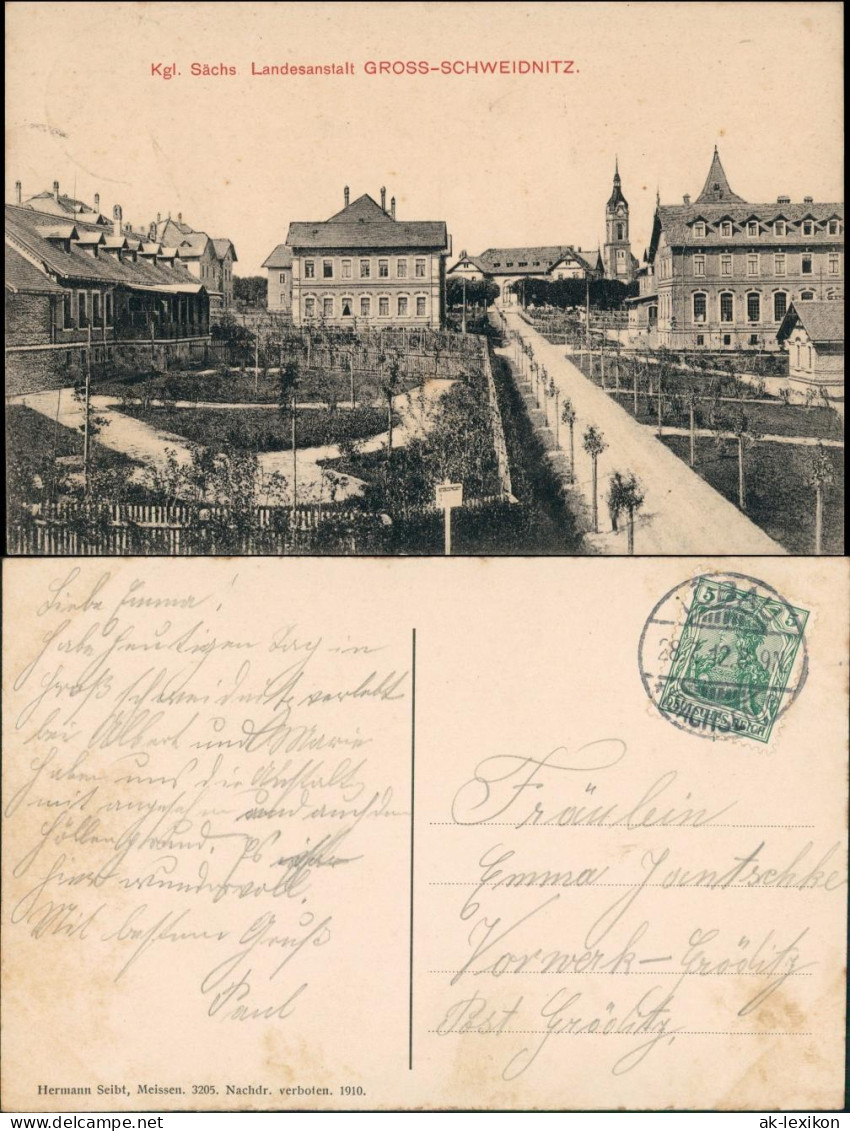 Kgl. Sächs Landesanstalt GROSS-SCHWEIDNITZ.
Liebe Emma!
habe heutigen Tag in
Groß schweidnitz verlebt
bei Albert und Marie
haben uns die Anstalt
mit angesehen und auch den
Höllengrund. Es
hier wundervoll.
Mit bestem Gruß
Paul
Hermann Seibt, Meissen. 3205. Nachdr. verboten. 1910.
LÖBAU
5 5
28.7.12. 8-9N
(SACHS.)
Fräulein
Emma Jentschke
Vorwerk-Gröditz
Post Gröditz,
ak-lexikon.com